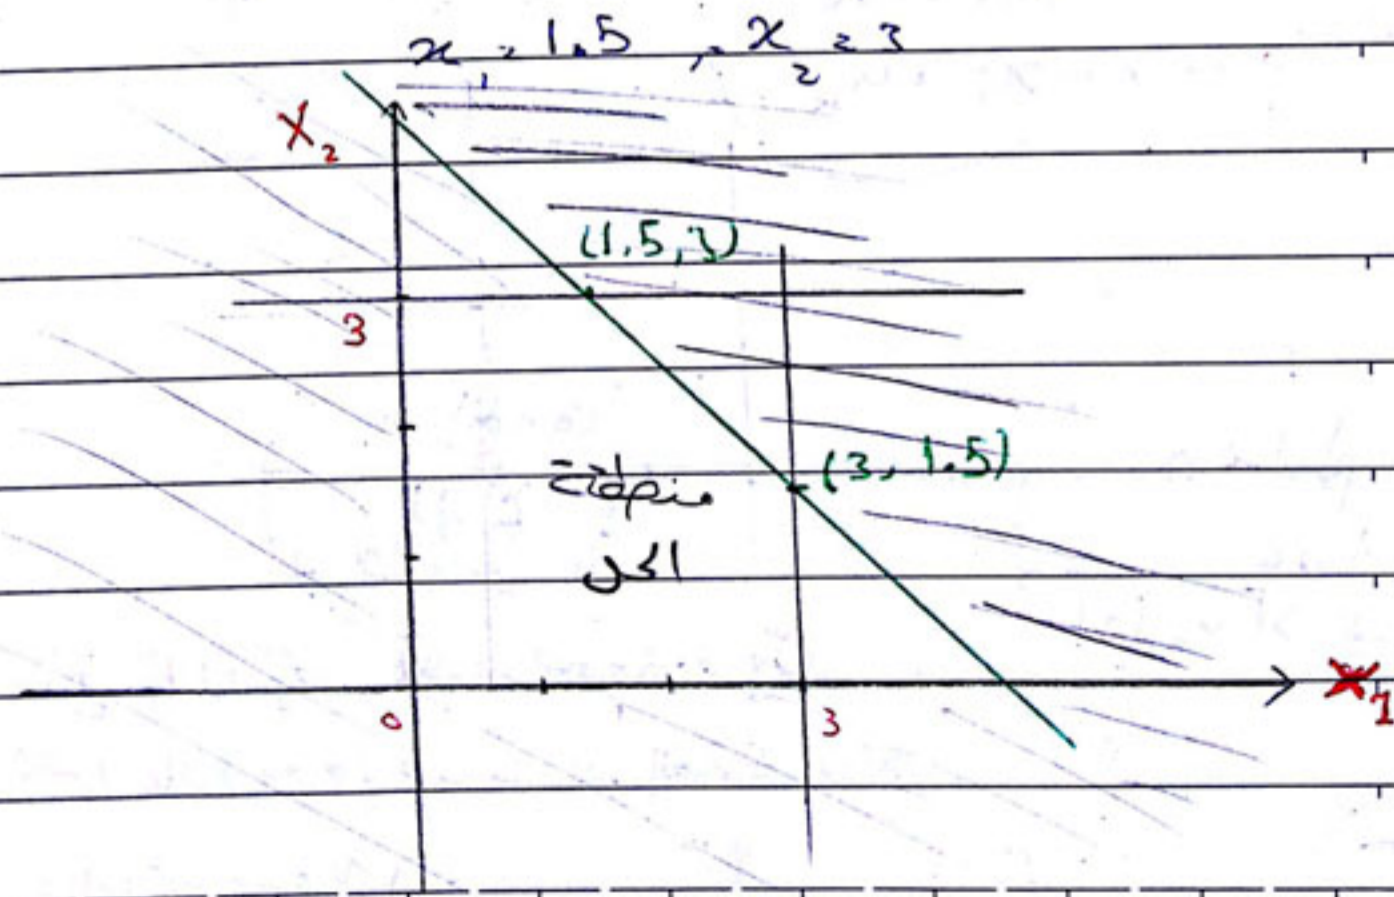 x₁ = 1.5 , x₂ = 3
X₂
(1.5, 3)
3
(3, 1.5)
منطقة
الحل
0
3
X₁